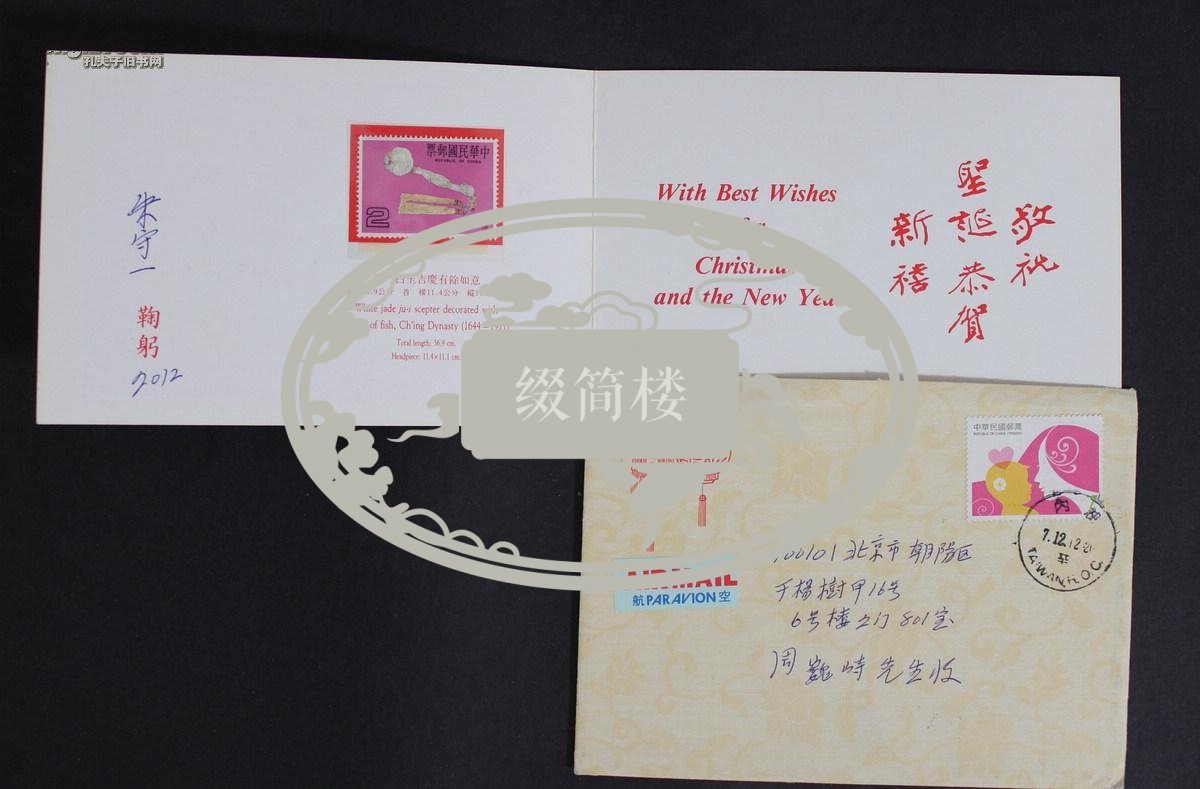 孔夫子旧书网
中華民國郵票
2
白玉吉慶有餘如意
White jade ju-i scepter decorated with
of fish, Ch'ing Dynasty (1644–1911)
Total length: 36.9 cm.
Headpiece: 11.4×11.1 cm.
朱守一
鞠躬
2012
With Best Wishes
Christmas
and the New Year
敬祝
聖誕恭賀
新禧
缀简楼
中華民國郵票
REPUBLIC OF CHINA (TAIWAN)
內湖
7.12.12
TAIWAN R.O.C.
AIR MAIL
航PAR AVION空
100101北京市朝陽区
千楊樹甲16号
6号楼2门801室
周 先生收